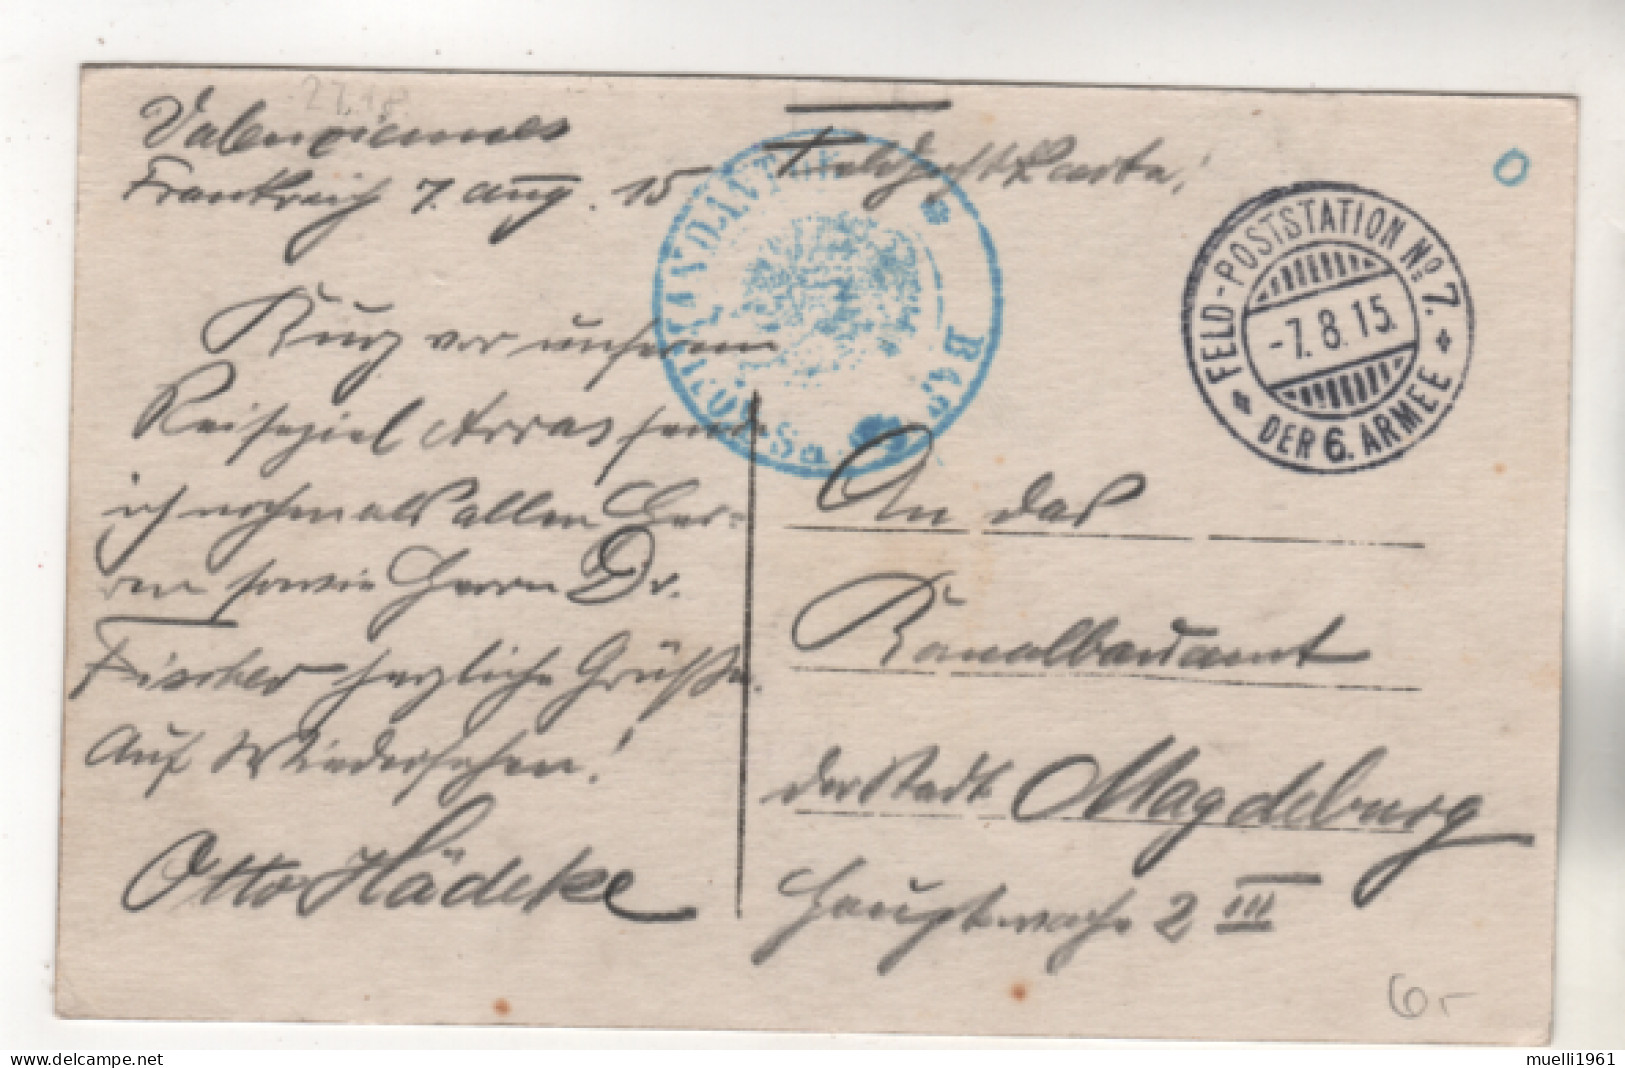 27.18
Valenciennes
Frankreich 7. Aug. 15
Feldpostkarte!
Kurz vor unserem
Reiseziel Arras sende
ich nochmals allen Her-
ren sowie Herrn Dr.
Fischer herzliche Grüße.
Auf Wiedersehen!
Otto Hädicke
FELD-POSTSTATION No. 7.
-7.8.15.
DER 6. ARMEE
An das
Kanalbauamt
der Stadt Magdeburg
Hauptwache 2 III
6,-
muelli1961